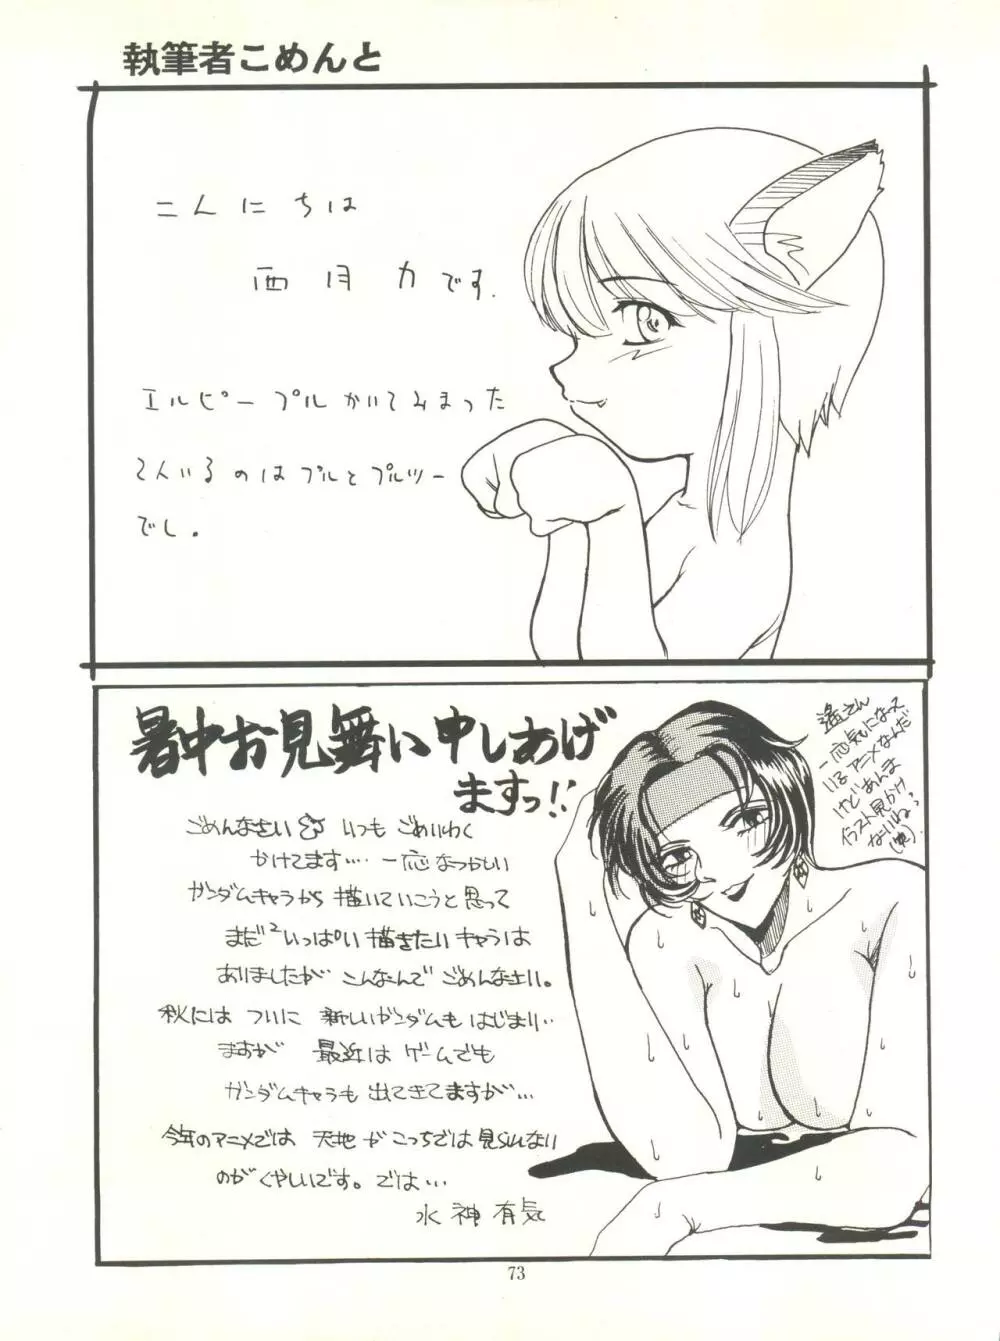 執筆者こめんと
こんにちは
西月力です.
エルピープルかいてみまった
2人いるのはプルとプルツー
でし。
暑中お見舞い申しあげ
ますっ!!
ごめんなさい いつも ごめいわく
かけてます…. 一応なつかしい
ガンダムキャラから 描いていこうと思って
まだ²いっぱい描きたいキャラは
ありましたが こんなんで ごめんなさい。
秋には ついに 新しいガンダムも はじまり…
ますが 最近は ゲームでも
ガンダムキャラも 出てきてますが…
今年のアニメでは 天地 が こっちでは 見られない
のが くやしいです。では…
水神有気
遥さん
一応気になース
いるアニメなんだ
けどあんま
イラスト見かけ
ないねっ
73